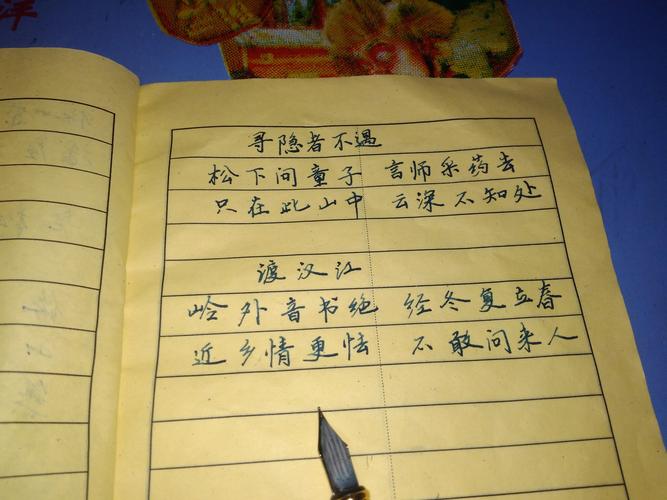 洋
寻隐者不遇
松下问童子 言师采药去
只在此山中 云深不知处
渡汉江
岭外音书绝 经冬复立春
近乡情更怯 不敢问来人